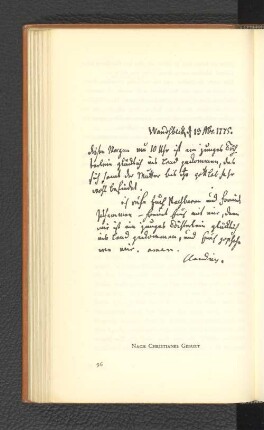 Wandsbeck, d 13 Nbr. 1775.
diesen Morgen um 10 Uhr ist ein junges Töch
terlein glücklich ins Land gekommen, das
sich samt der Mutter bis gottlob sehr
wohl befindet.
ich rufe Euch Nachbarn und Freund
zusammen – freut Euch mit mir, denn
mir ist ein junges Töchterlein glücklich
ins Land gekommen, und
mir. amen.
Claudius.
NACH CHRISTIANES GEBURT
96